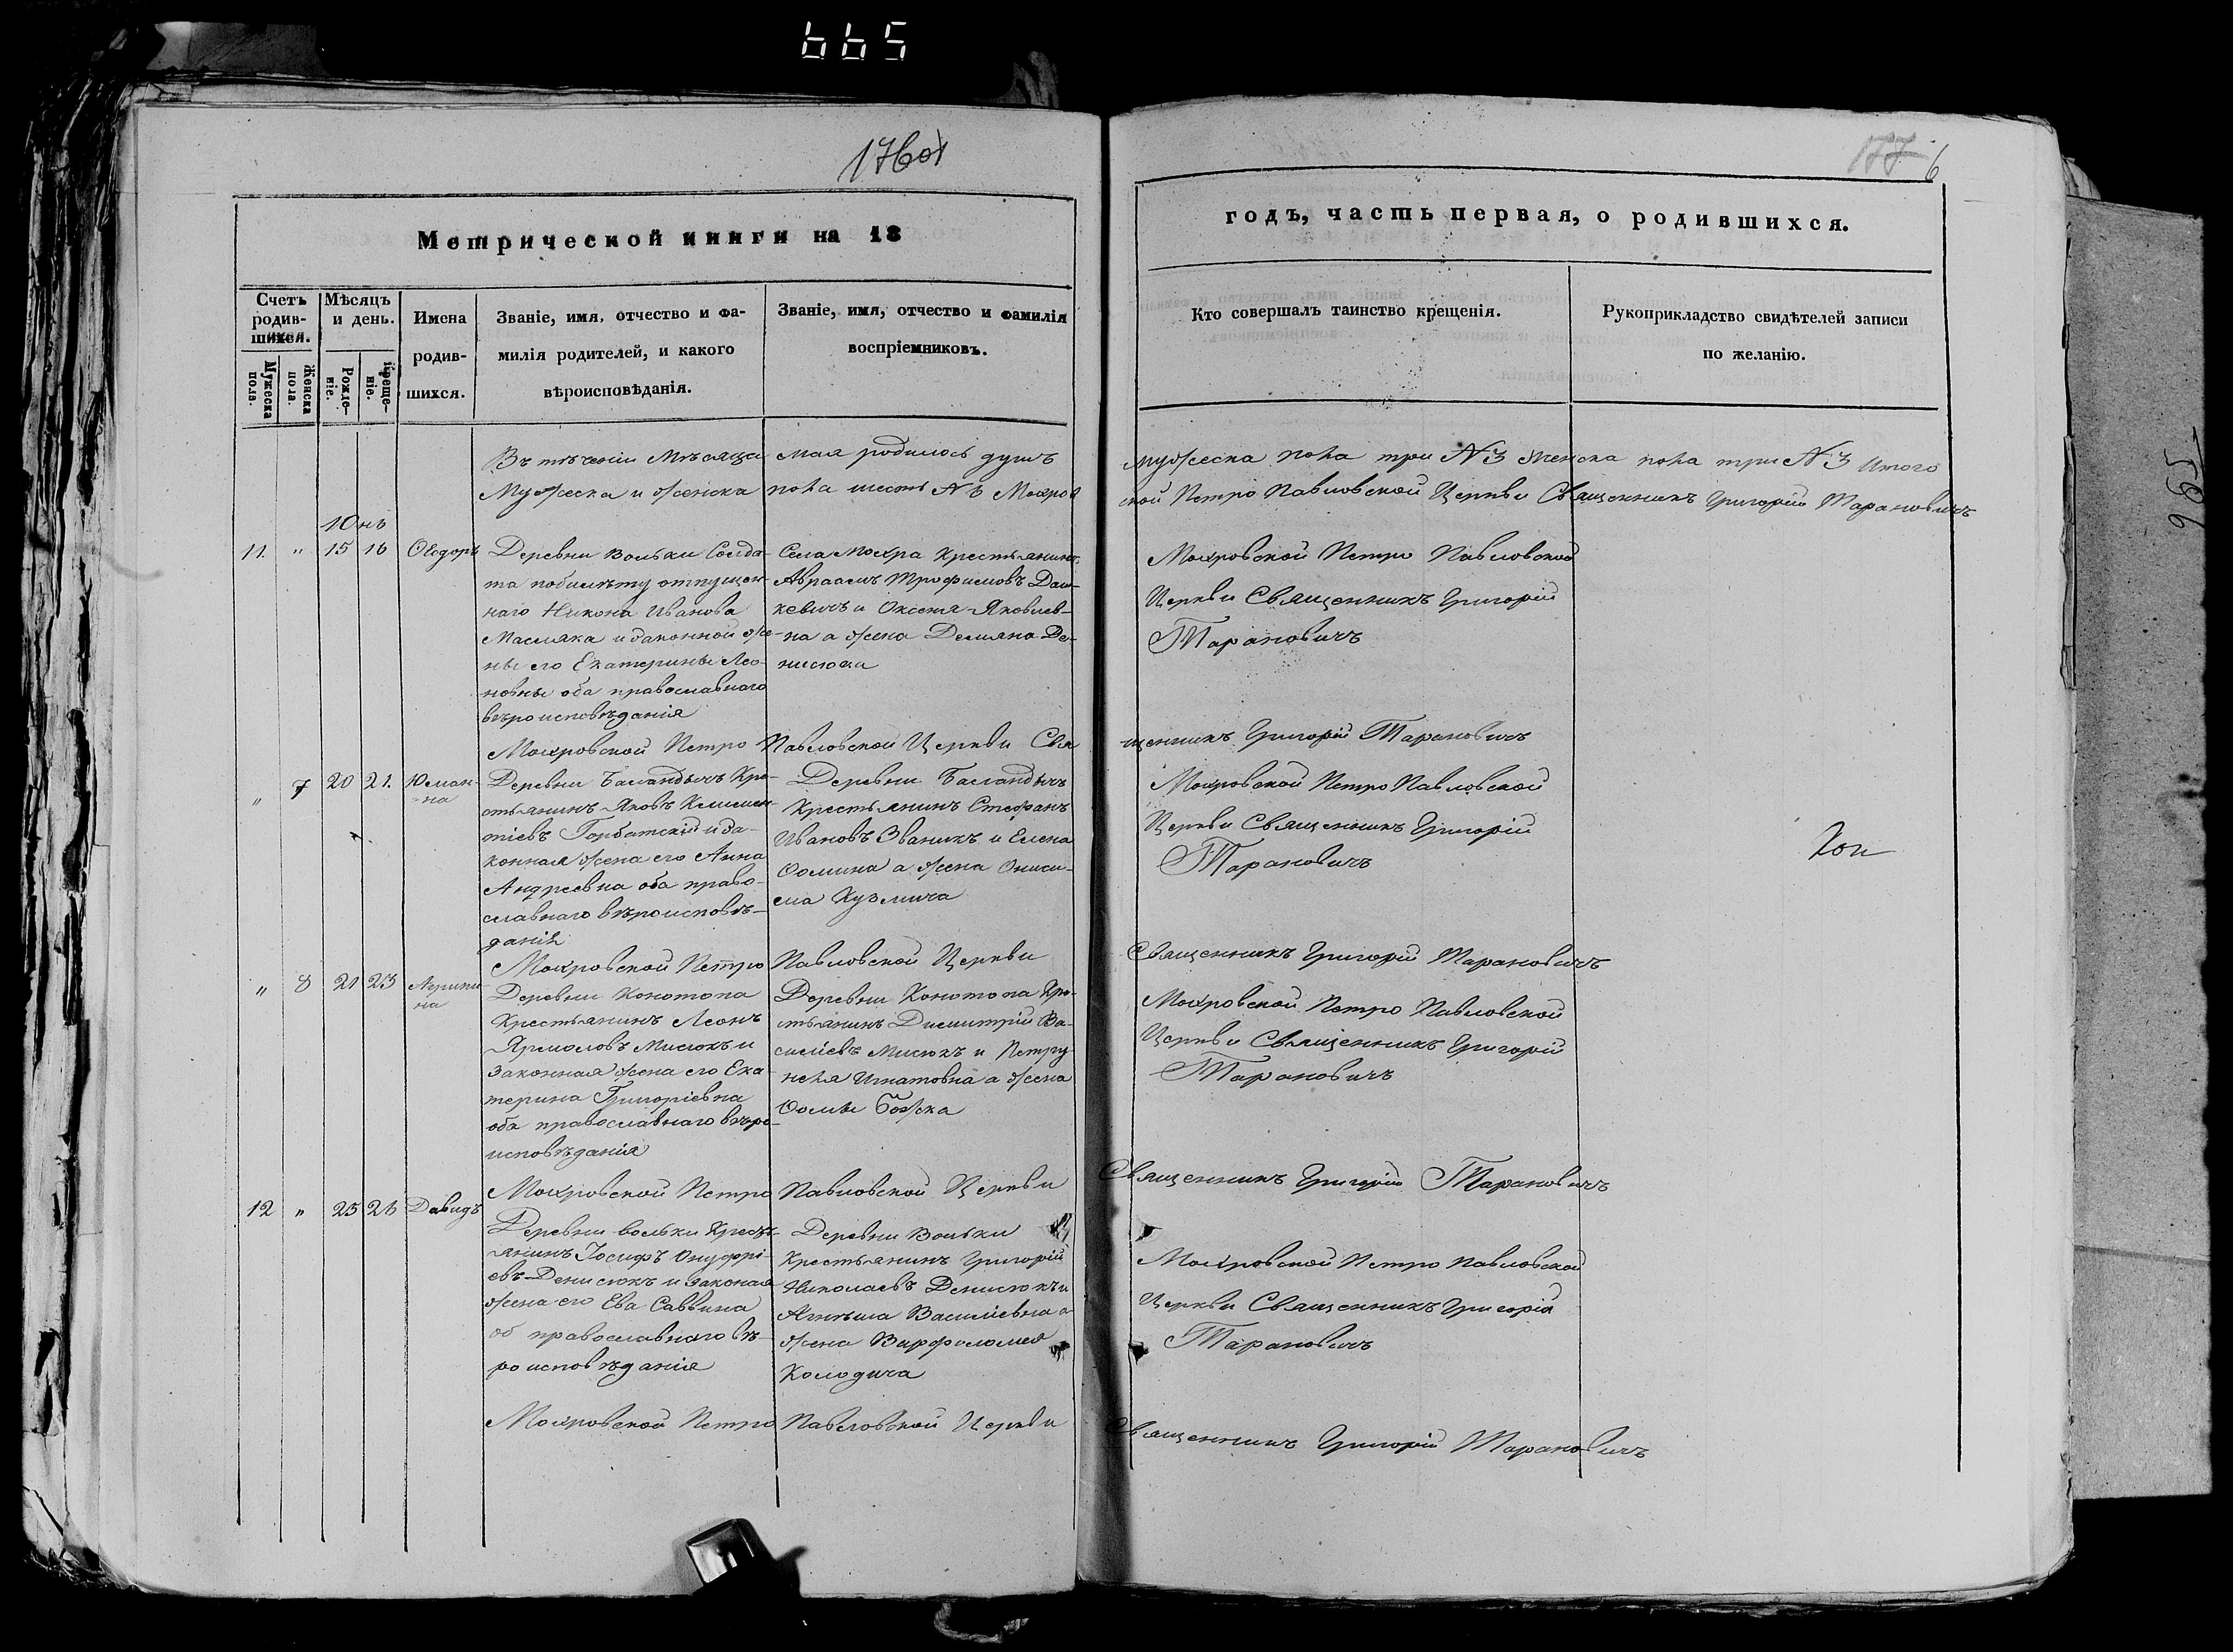 665
176об
177 6
Метрической книги на 18
годъ, часть первая, о родившихся.
Счетъ родив-шихся.
Мѣсяцъ и день.
Имена родив-шихся.
Званіе, имя, отчество и фа-
милія родителей, и какого
вѣроисповѣданія.
Званіе, имя, отчество и фамилія
воспріемниковъ.
Кто совершалъ таинство крещенія.
Рукоприкладство свидѣтелей записи
по желанію.
Мужеска пола.
Женска пола.
Рожде-ніе.
Креще-ніе.
Въ теченіи Мѣсяца мая родилось душъ мужеска пола три №3 женска пола три №3 Итого
Мужеска и женска пола шесть № 6 Мохров ской Петро Павловской Церкви Священникъ Григорій Тарановичъ
Юнь
11. " 15 16 Ѳеодоръ
Деревни Вольки Солда-
та побилѣту отпущен-
наго Никона Иванова
Масляка и законной же-
ны его Екатерины Лео-
новны оба православнаго
вѣроисповѣданія
Села Мохра крестьянинъ
Авраамъ Трофимовъ Даш-
кевичъ и Оксеня Яковлев-
на а жена Демяна Де-
нисюка
Мохровской Петро Павловской
Церкви Священникъ Григорій
Тарановичъ
Мохровской Петро Павловской Церкви Свя щенникъ Григорій Тарановичъ
" 7 20 21.
Деревни Басландычъ Кре-
стьянинъ Яковъ Клемен-
тіевъ Горбатскій и за-
конная жена его Анна
Андреевна оба право-
славнаго вѣроисповѣ-
данія
Деревни Басландычъ
Крестьянинъ Стефанъ
Ивановъ Званикъ и Елена
Ѳомина а жена Ониси-
ма Кузмича
Мохровской Петро Павловской
Церкви Священникъ Григорій
Тарановичъ
Коп
Мохровской Петро Павловской Церкви Священникъ Григорій Тарановичъ
" 8 21 23 Агрипи
на
Деревни Конотопа
Крестьянинъ Леонъ
Ярмоловъ Мисюкъ и
законная жена его Ека
терина Григоріевна
оба православнаго вѣро-
исповѣданія
Деревни Конотопа Кре-
стьянинъ Димитрій Ва-
силіевъ Мисюкъ и Петру
неля Игнатовна а жена
Ѳомы Божка
Мохровской Петро Павловской
Церкви Священникъ Григорій
Тарановичъ
Мохровской Петро Павловской Церкви Священникъ Григорій Тарановичъ
12 " 25 26 Давидъ
Деревни Вольки Кресть-
янинъ Іосифъ Онуфрі-
евъ Денисюкъ и законая
жена его Ева Саввина
об православнаго вѣ-
роисповѣданія
Деревни Вольки
Крестьянинъ Григорій
Николаевъ Денисюкъ и
Василіевна а
жена Варфоломея
Колодича
Мохровской Петро Павловской
Церкви Священникъ Григорій
Тарановичъ
Мохровской Петро Павловской Церкви Священникъ Григорій Тарановичъ